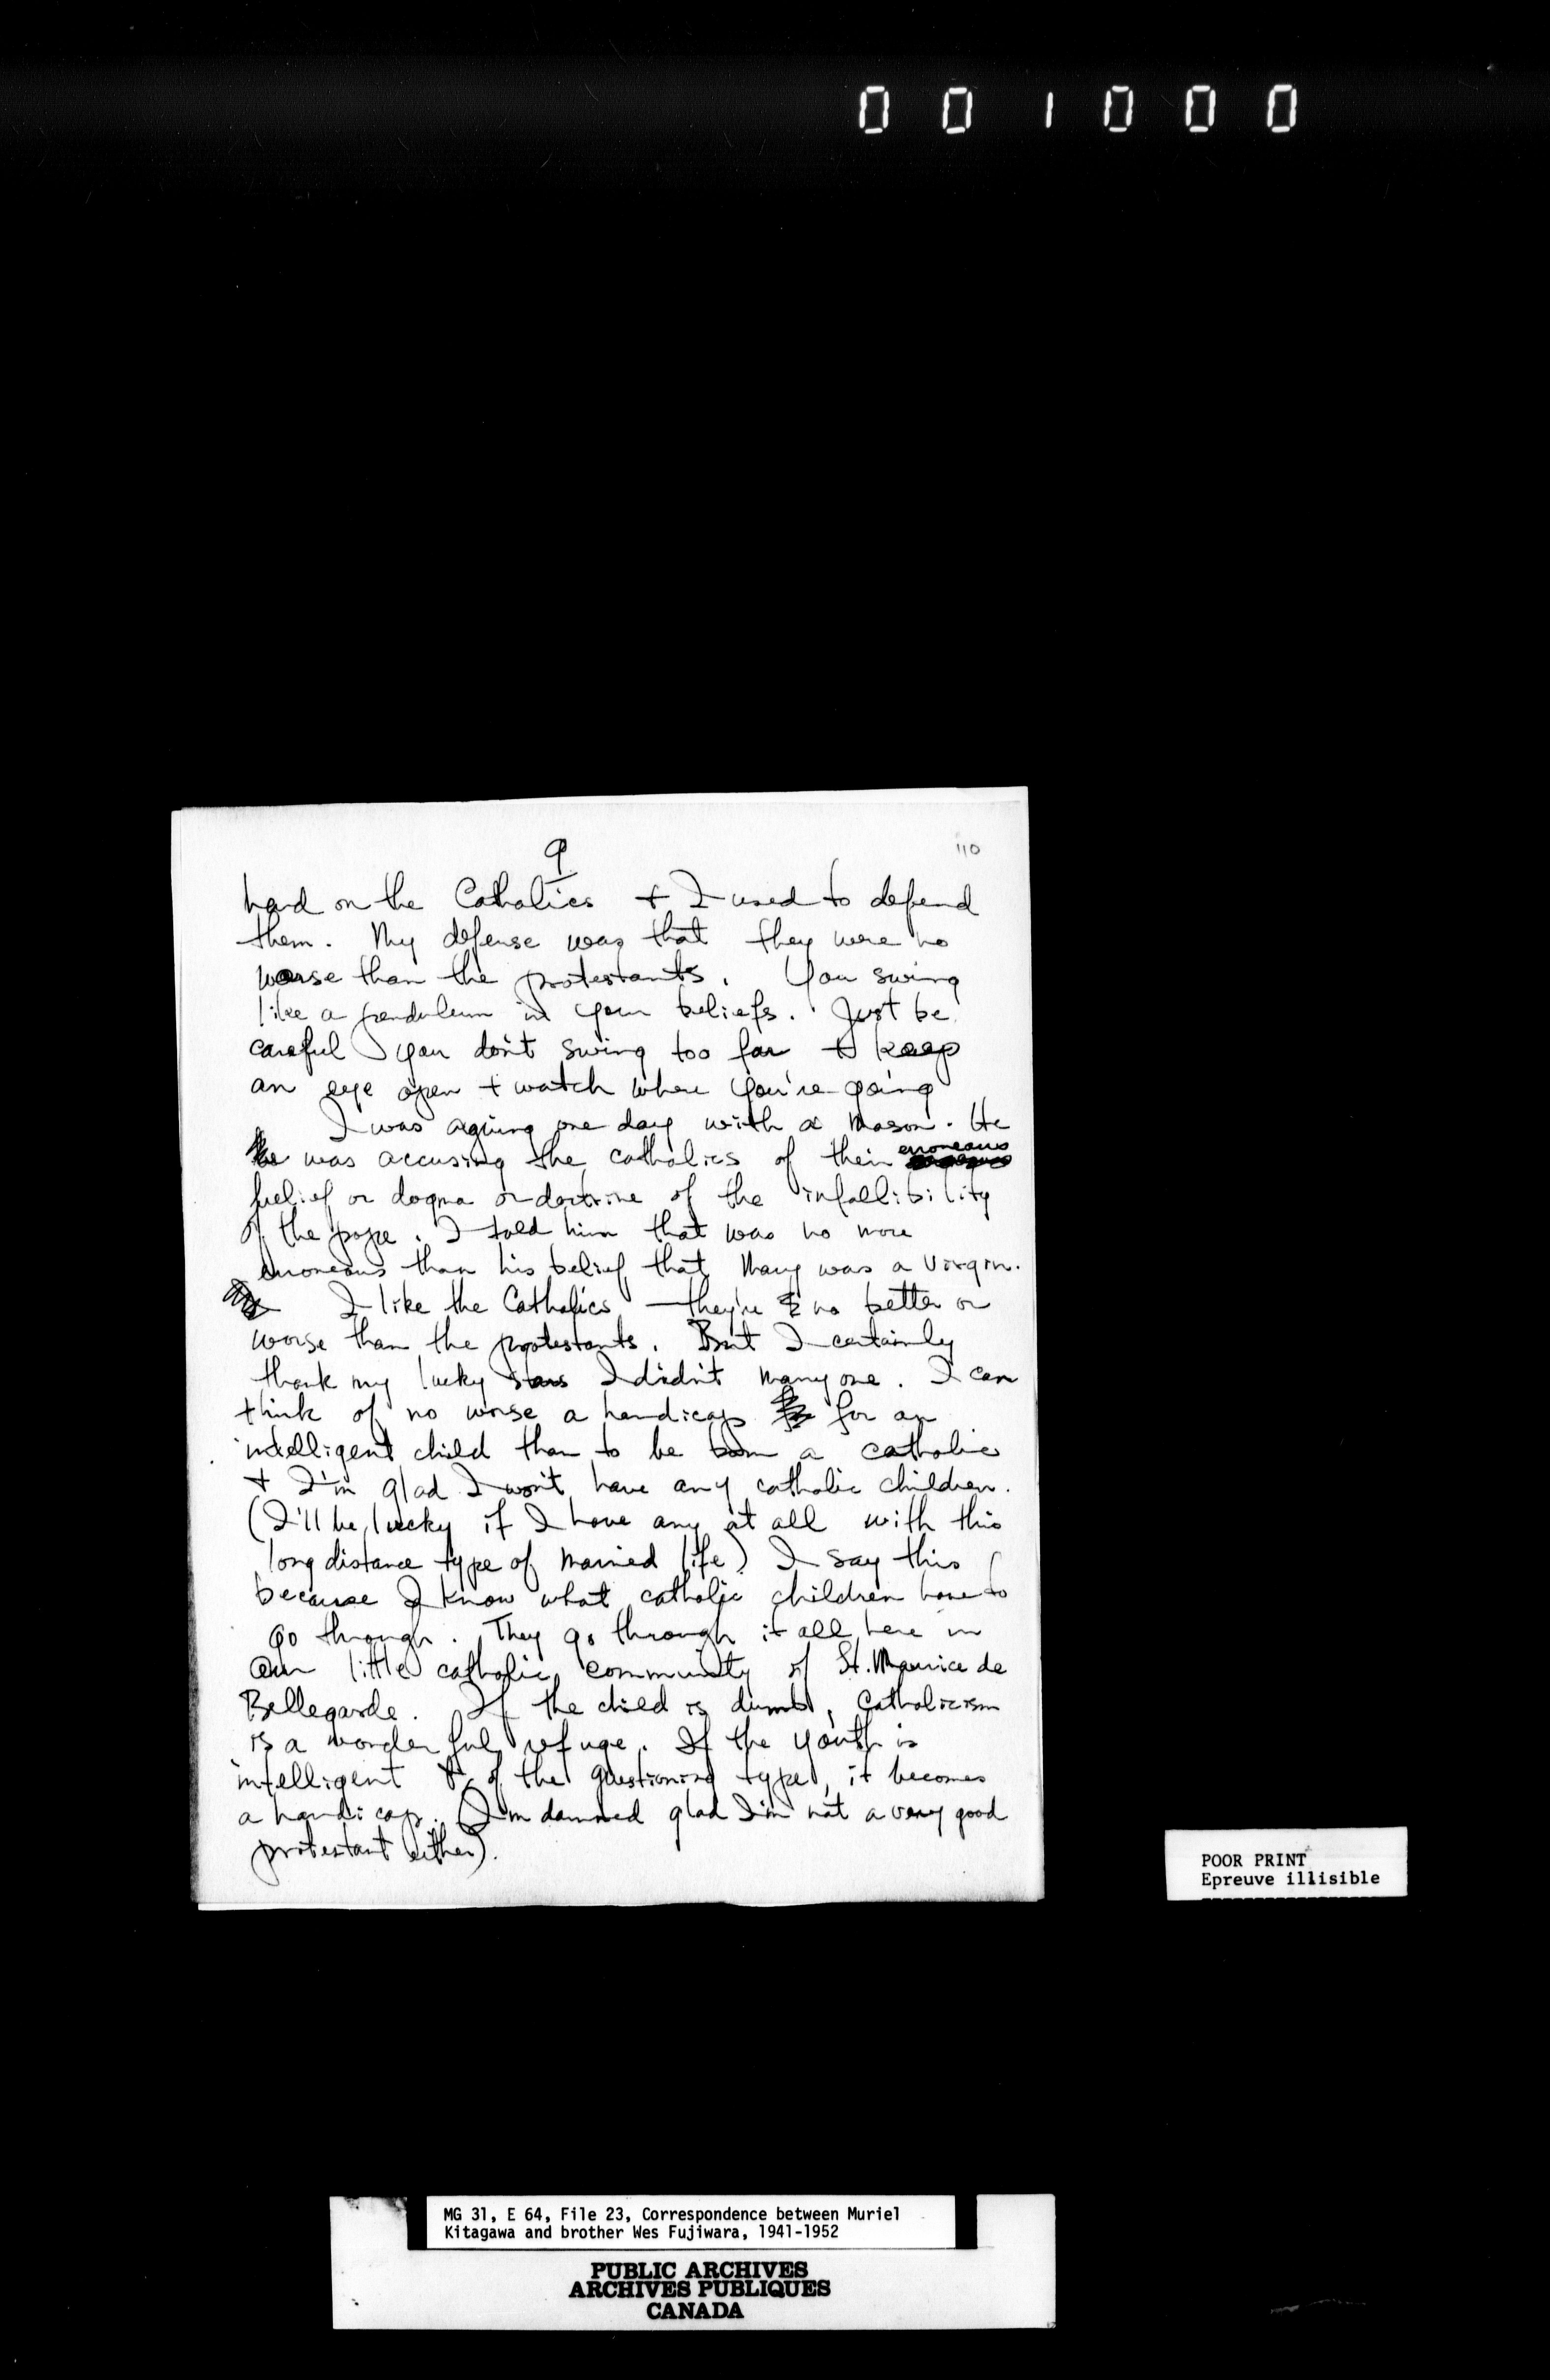 001000
9
110
hard on the Catholics + I used to defend
them. My defense was that they were no
worse than the protestants. You swing
like a pendulum in your beliefs. Just be
careful you don't swing too far + keep
an eye open + watch where you're going
I was aguing one day with a Mason. He
he was accusing the catholics of their erroneous
belief or dogma or doctrine of the infallibility
of the pope. I told him that was no more
erroneous than his belief that Mary was a virgin.
I like the Catholics — they're no better or
worse than the protestants. But I certainly
thank my lucky stars I didn't marry one. I can
think of no worse a handicap for an
intelligent child than to be born a catholic
+ I'm glad I won't have any catholic children.
(I'll be lucky if I have any at all with this
long distance type of married life) I say this
because I know what catholic children have to
go through. They go through it all here in
our little catholic community of St. Maurice de
Bellegarde. If the child is dumb, Catholicism
is a wonderful refuge. If the youth is
intelligent & of the questioning type, it becomes
a handicap. (I'm damned glad I'm not a very good
protestant either).
POOR PRINT
Epreuve illisible
MG 31, E 64, File 23, Correspondence between Muriel
Kitagawa and brother Wes Fujiwara, 1941-1952
PUBLIC ARCHIVES
ARCHIVES PUBLIQUES
CANADA